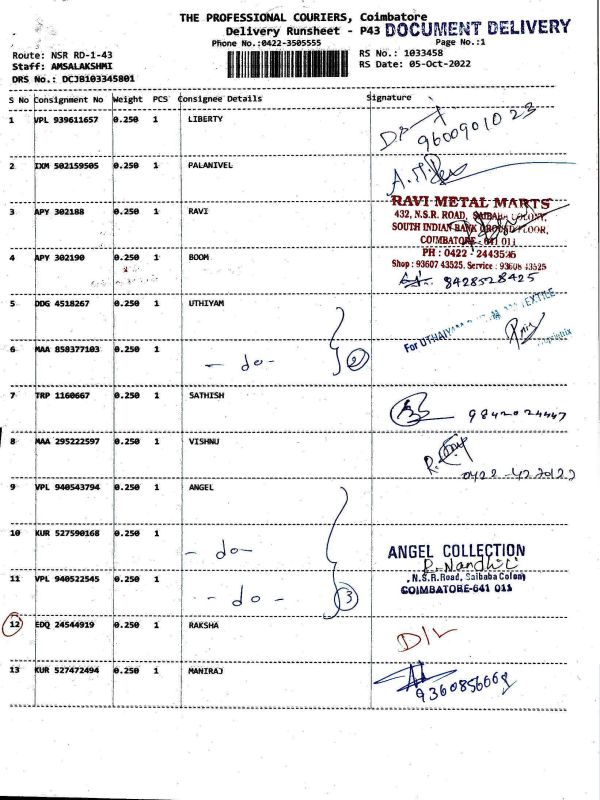 THE PROFESSIONAL COURIERS, Coimbatore
Delivery Runsheet - P43 DOCUMENT DELIVERY
Phone No.:0422-3505555 Page No.:1
Route: NSR RD-1-43 RS No.: 1033458
Staff: AMSALAKSHMI RS Date: 05-Oct-2022
DRS No.: DCJB103345801
S No Consignment No Weight PCS Consignee Details Signature
1 VPL 939611657 0.250 1 LIBERTY
9600901023
2 IXM 502159505 0.250 1 PALANIVEL
RAVI METAL MARTS
3 APY 302188 0.250 1 RAVI 432, N.S.R. ROAD, SAIBABA COLONY,
SOUTH INDIAN BANK GROUND FLOOR,
COIMBATORE - 641 011
PH : 0422 - 2443526
4 APY 302190 0.250 1 BOOM Shop : 93607 43525, Service : 93608 43525
8428528425
5 DDG 4518267 0.250 1 UTHIYAM
6 MAA 858377103 0.250 1
- do - 2
7 TRP 1160667 0.250 1 SATHISH
9842024447
8 MAA 295222597 0.250 1 VISHNU
9 VPL 940543794 0.250 1 ANGEL
10 KUR 527590168 0.250 1
- do - ANGEL COLLECTION
R. Nandhi
11 VPL 940522545 0.250 1 N.S.R. Road, Saibaba Colony
- do - 3 COIMBATORE-641 011
12 EDQ 24544919 0.250 1 RAKSHA
D/L
13 KUR 527472494 0.250 1 MANIRAJ
9360856008